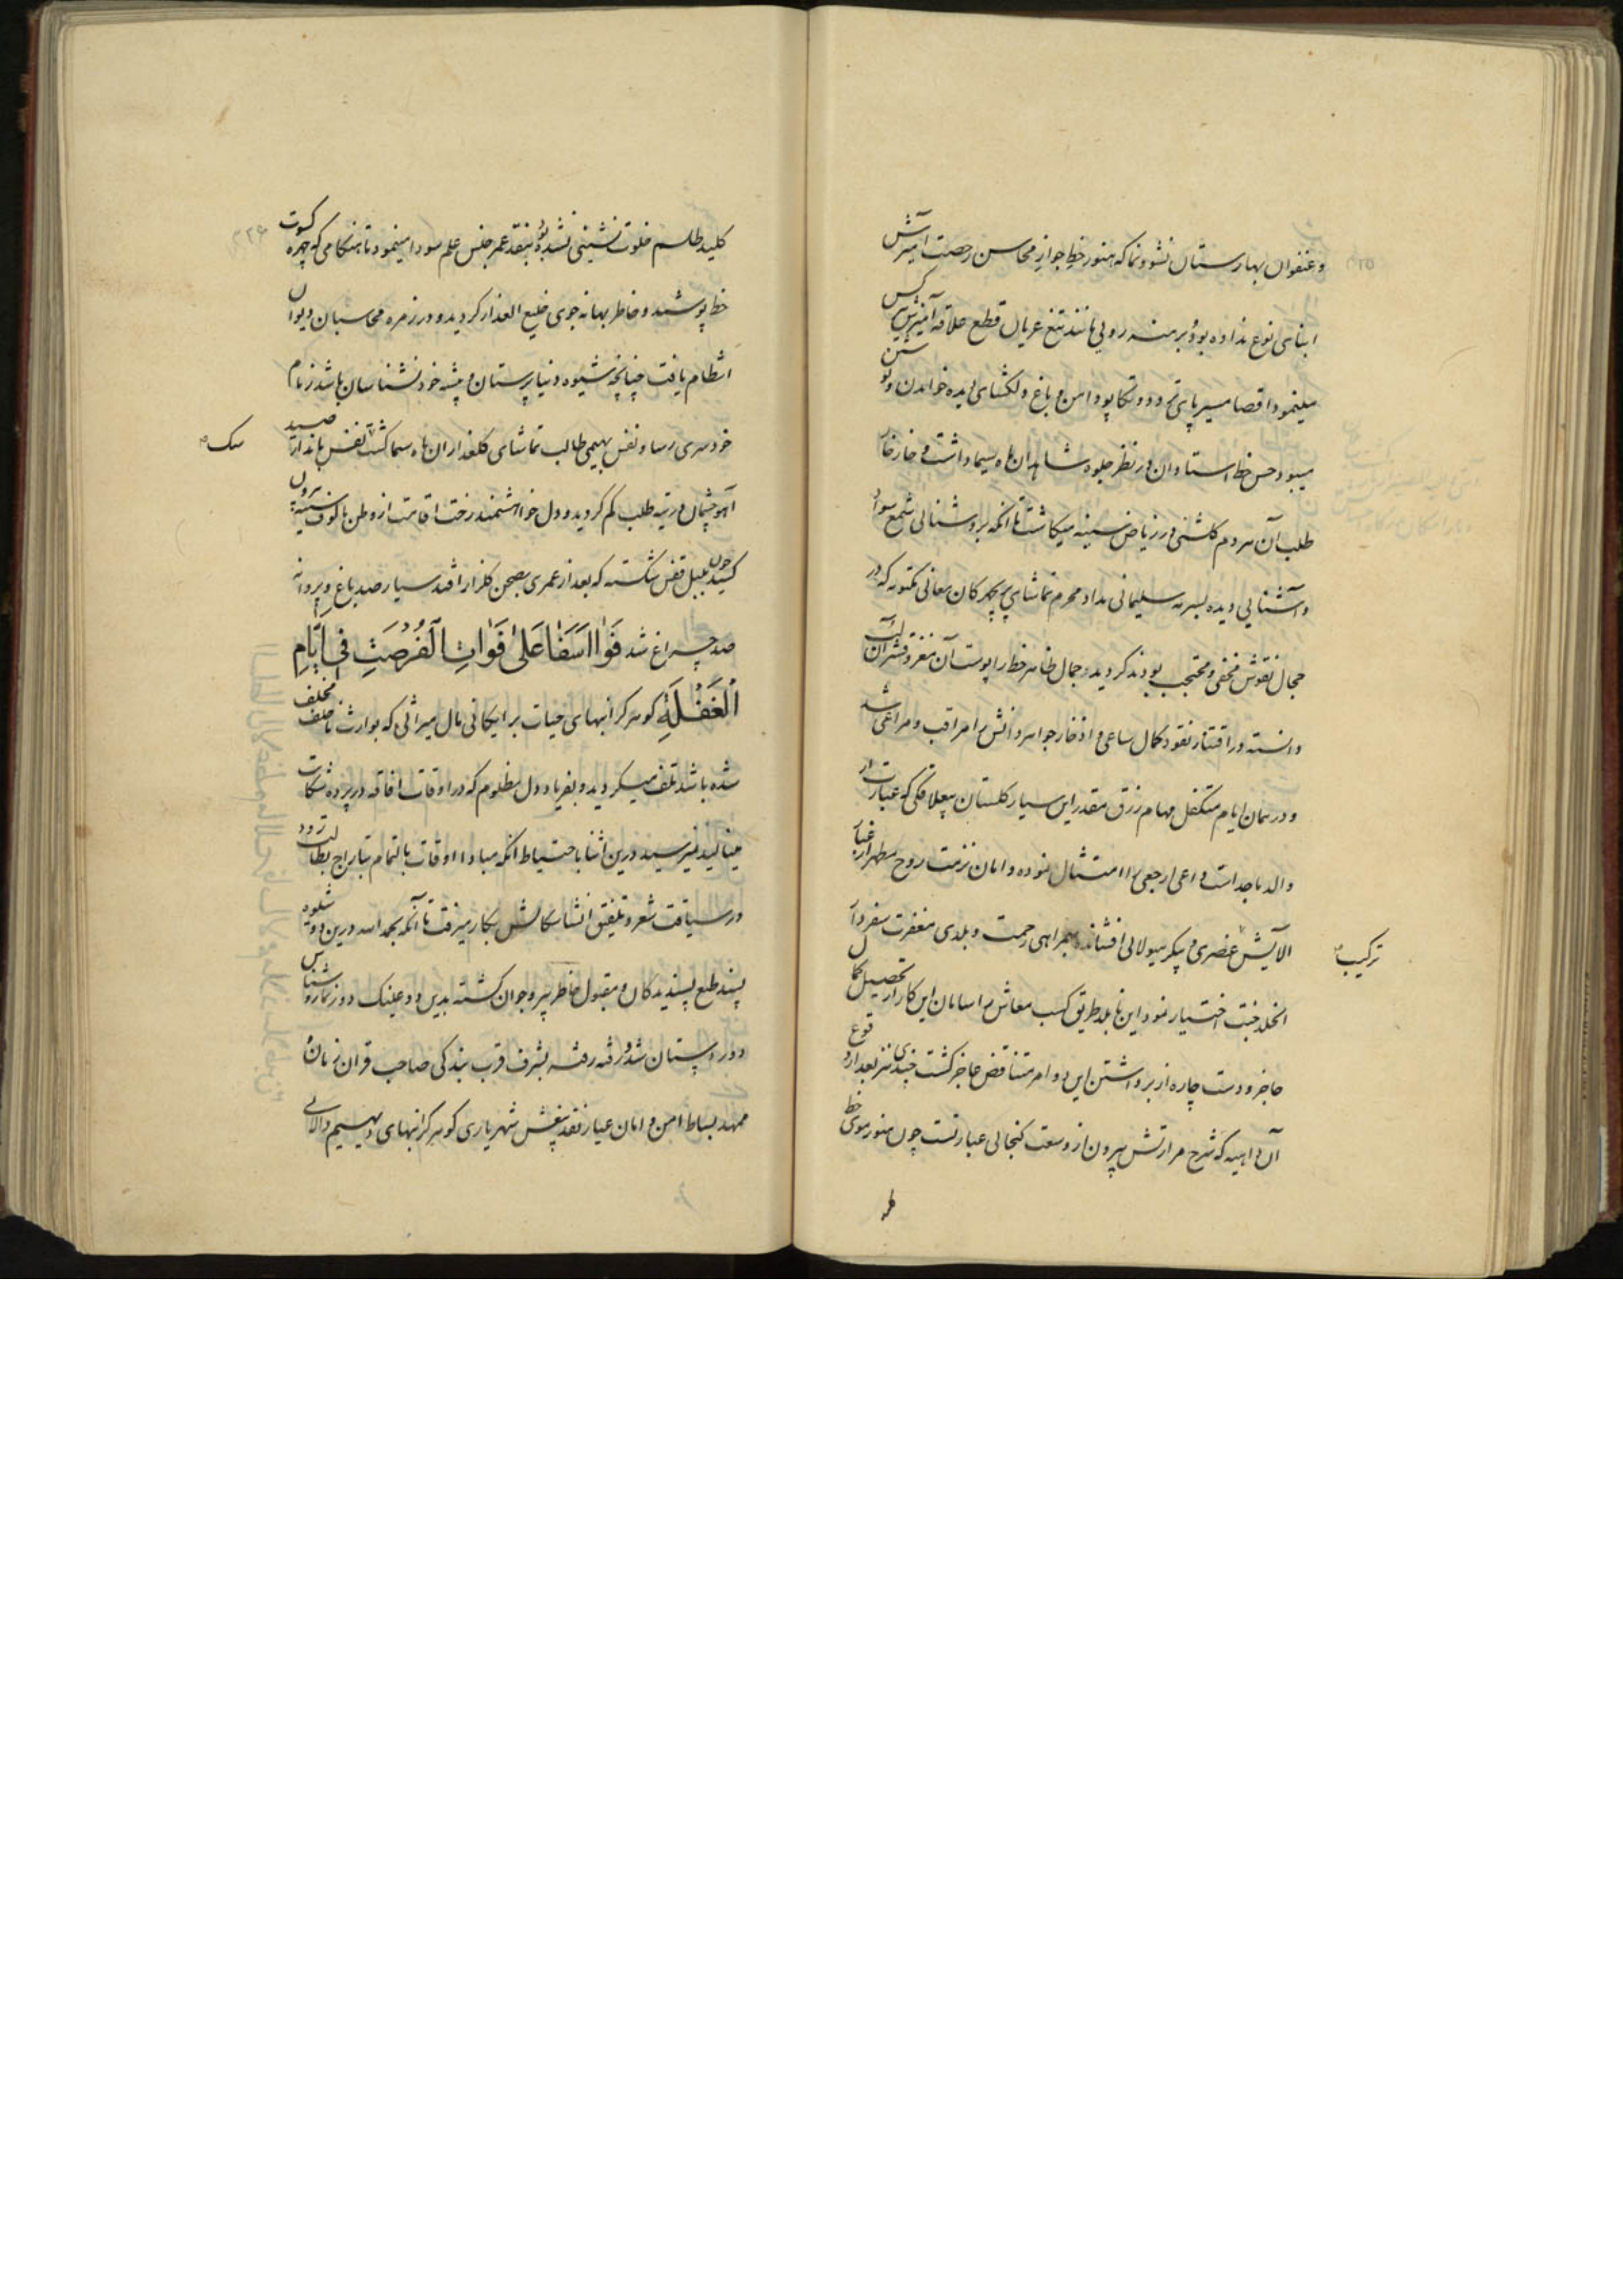 و عنفوان بهارستان نشو و نما که هنوز خط جواز محاسن رخصت آمیزش
ابنای نوع نداده بود و برهنه رویی مانند تیغ عریان قطع علاقه آمیزش کس
مینمود اقصا مسیر پای تردد و تکاپو دامن باغ دلکشای دیده خواندن و نوشتن
میبود حسن خط استادان در نظر جلوه شاهدان ماه سیما داشت و خار خار
طلب آن هر دم گلشنی در ریاض سینه میکاشت تا آنکه بروشنائی شمع سواد
و آشنایی دیده بسرمه سلیمانی مداد محرم تماشای پریچهرگان معانی مکنونه که در
حجال نقوش مخفی و محتجب بودند گردید و جمال ظاهر خط را پوست آن مغز و قشر آن لب
دانسته در اقتناء نقود کمال ساعی و اذخار جواهر دانش را مراقب و مراعی شد
و در همان ایام متکفل مهام رزق مقدر این سیار گلستان بیعلاقگی که عبارت از
والد ماجد است داعی ارجعی را امتثال نموده دامان نزهت روح مطهر از غبار
آلایش عنصری و پیکر هیولائی افشانده بهمراهی رحمت و بلدی مغفرت سفر دار
ترکیب
الخلد جنت اختیار نمود این نابلد طریق کسب معاش را سامان این کار از تحصیل کمال
حاجز و دست چاره از برداشتن این دو امر متناقض عاجز گشت چندی نیز بعد از وقوع
آن داهیه که شرح مرارتش بیرون از وسعت گنجائی عبارتست چون هنوز موی خط
کلید طلسم خلوت نشینی نشده بود بنقد عمر جنس علم سودا مینمود تا هنگامی که چهره کسوت
خط پوشید و خاطر بهانه جوی خلیع العذار گردید و در زمره محاسبان دیوان
انتظام یافت چنانچه شیوه دنیاپرستان و پیشه خود نشناسان باشد زمام
خودسری رسا و نفس بهیمی طالب تماشای گلعذاران ماه سیما گشت نفس مانند از صید
سک
آهو چشمان در تیه طلب گم گردید و دل خواهشمند رخت اقامت از وطن مألوف سینه بیرون
کشید چون بلبل قفس شکسته که بعد از عمری بصحن گلزار افتد سیار صد باغ و پروانه
صد چراغ شد فَوَا اَسَفٰا عَلٰی فَوٰاتِ الْفُرْصَتِ فی اَیّٰامِ
الْغَفْلَةِ گوهر گرانبهای حیات برایگانی مال میراثی که بوارث ناخلف مخلف
شده باشد تلف میگردید و بفریاد دل مظلوم که در اوقات افاقه در پرده شکایت
مینالید نمیرسید درین اثنا باحتیاط آنکه مبادا اوقات بالتمام بتاراج بطالت رود
در سیاقت شعر و تلفیق انشا سگالش بکار میرفت تا آنکه بحمد الله درین دو شیوه
پسند طبع پسندیدگان و مقبول خاطر پیر و جوان گشته بدین دو عینک دور نما روشناس
دور دستان شد و رفته رفته بشرف قرب بندگی صاحب قران زمان
ممهد بساط امن و امان عیار نقد بینش شهریاری گوهر گرانبهای دیهیم والائی